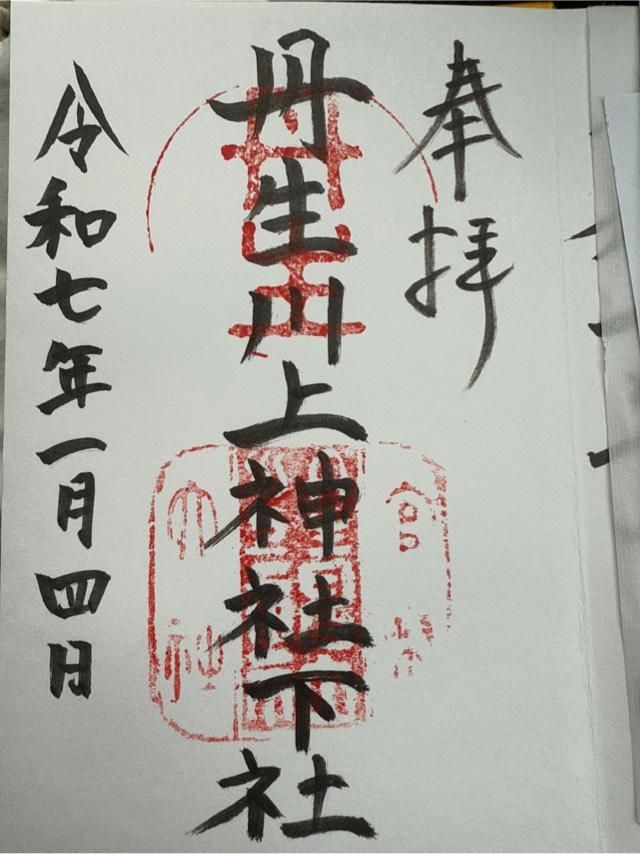 奉拝
丹生川上神社下社
令和七年一月四日